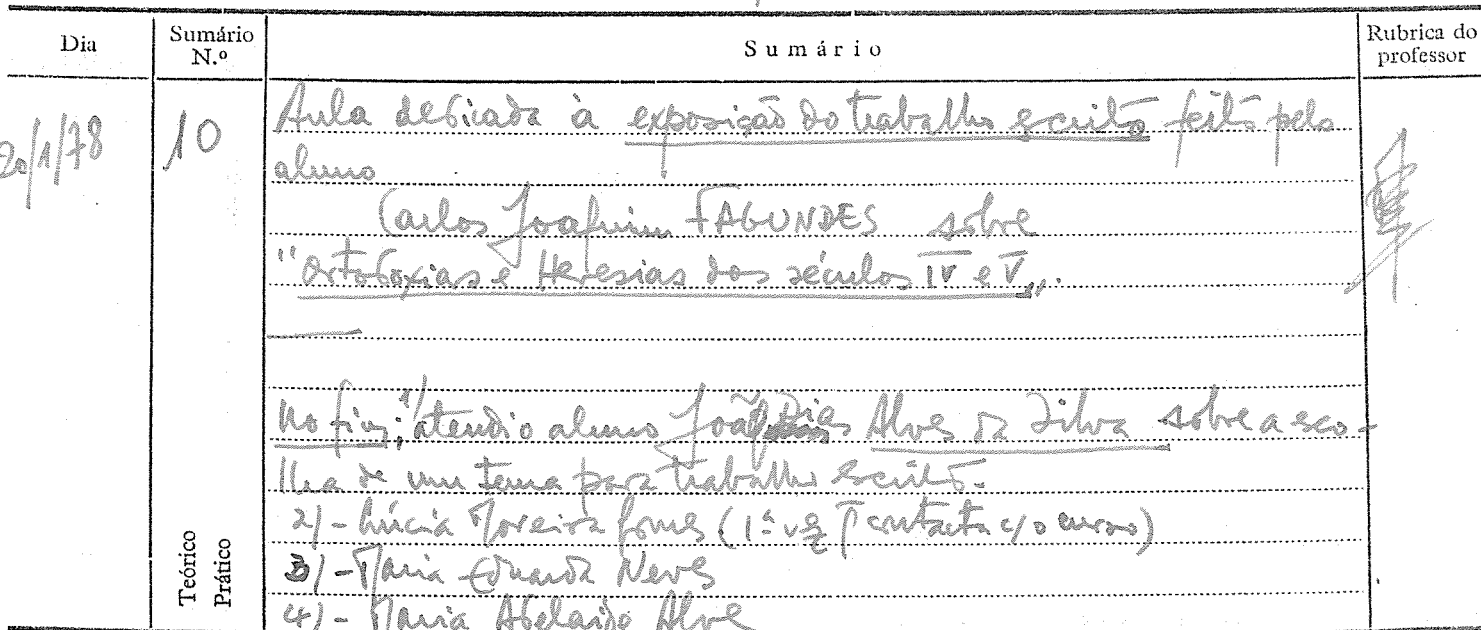 Dia
Sumário N.º
Sumário
Rubrica do professor
20/1/78
10
Aula dedicada à exposição do trabalho escrito feito pelo
aluno
Carlos Joaquim FAGUNDES sobre
"Ortodoxias e Heresias dos séculos IV e V".
No fim: 1) atendi o aluno João Dias Alves da Silva sobre a esco-
lha de um tema para trabalho escrito.
2) - Lúcia Moreira Gomes (1ª vez contacta c/ o curso)
3) - Maria Eduarda Neves
4) - Maria Adelaide Alves
Teórico
Prático